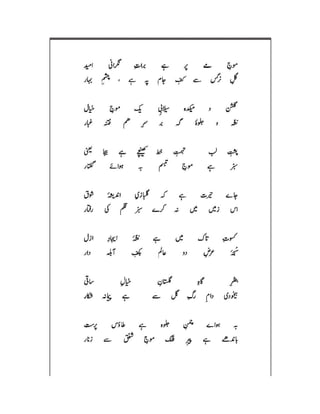 موج مے پر ہے براتِ نگرانی امید
گلِ نرگس سے کفِ جام پہ ہے ، چشمِ بہار
گلشن و میکدہ سیلابیِ یک موجِ خیال
نشہ و جلوۂ گل بر سرِ ہم فتنہ عیار
پشتِ لب تہمتِ خط کھینچے ہے بیجا یعنی
سبز ہے موجِ تبسم بہ ہوائے گفتار
جاے حیرت ہے کہ گلبازیِ اندیشۂ شوق
اس زمیں میں نہ کرے سبز قلم کی رفتار
کسوتِ تاک میں ہے نشۂ ایجادِ ازل
سبحۂ عرضِ دو عالم بکفِ آبلہ دار
بنظر گاہِ گلستانِ خیالِ ساقی
بیخودی دامِ رگِ گل سے ہے پیمانہ شکار
بہ ہواے چمنِ جلوہ ہے طاؤس پرست
باندھے ہے پیرِ فلک موجِ شفق سے زنار